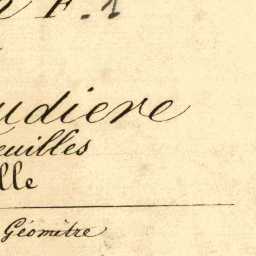 F. 1
udiere
euilles
lle
Géomètre